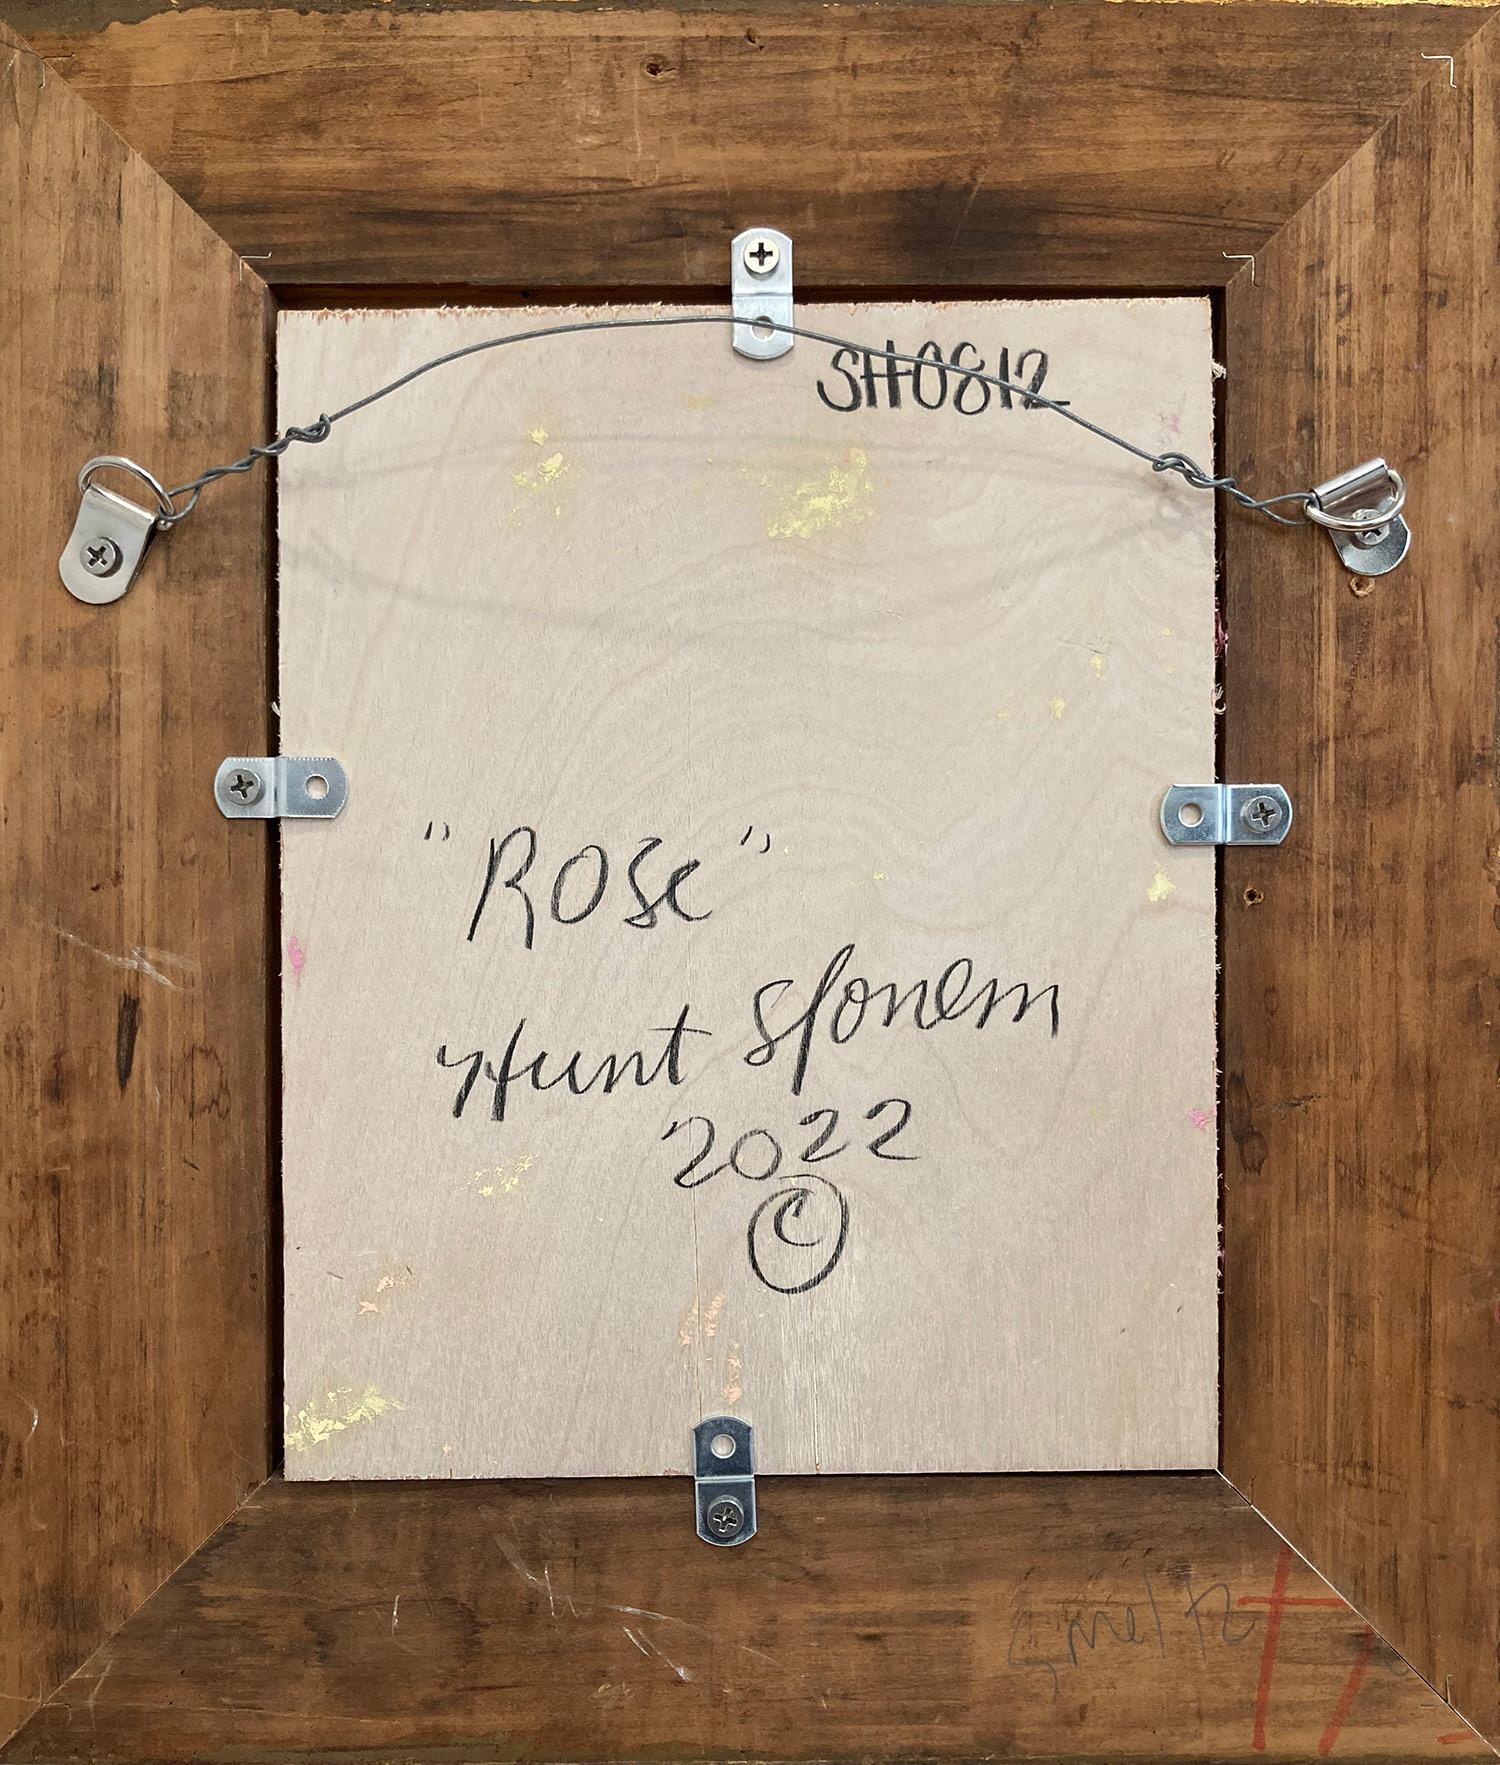 SH0812
"Rose"
Hunt Slonem
2022
©